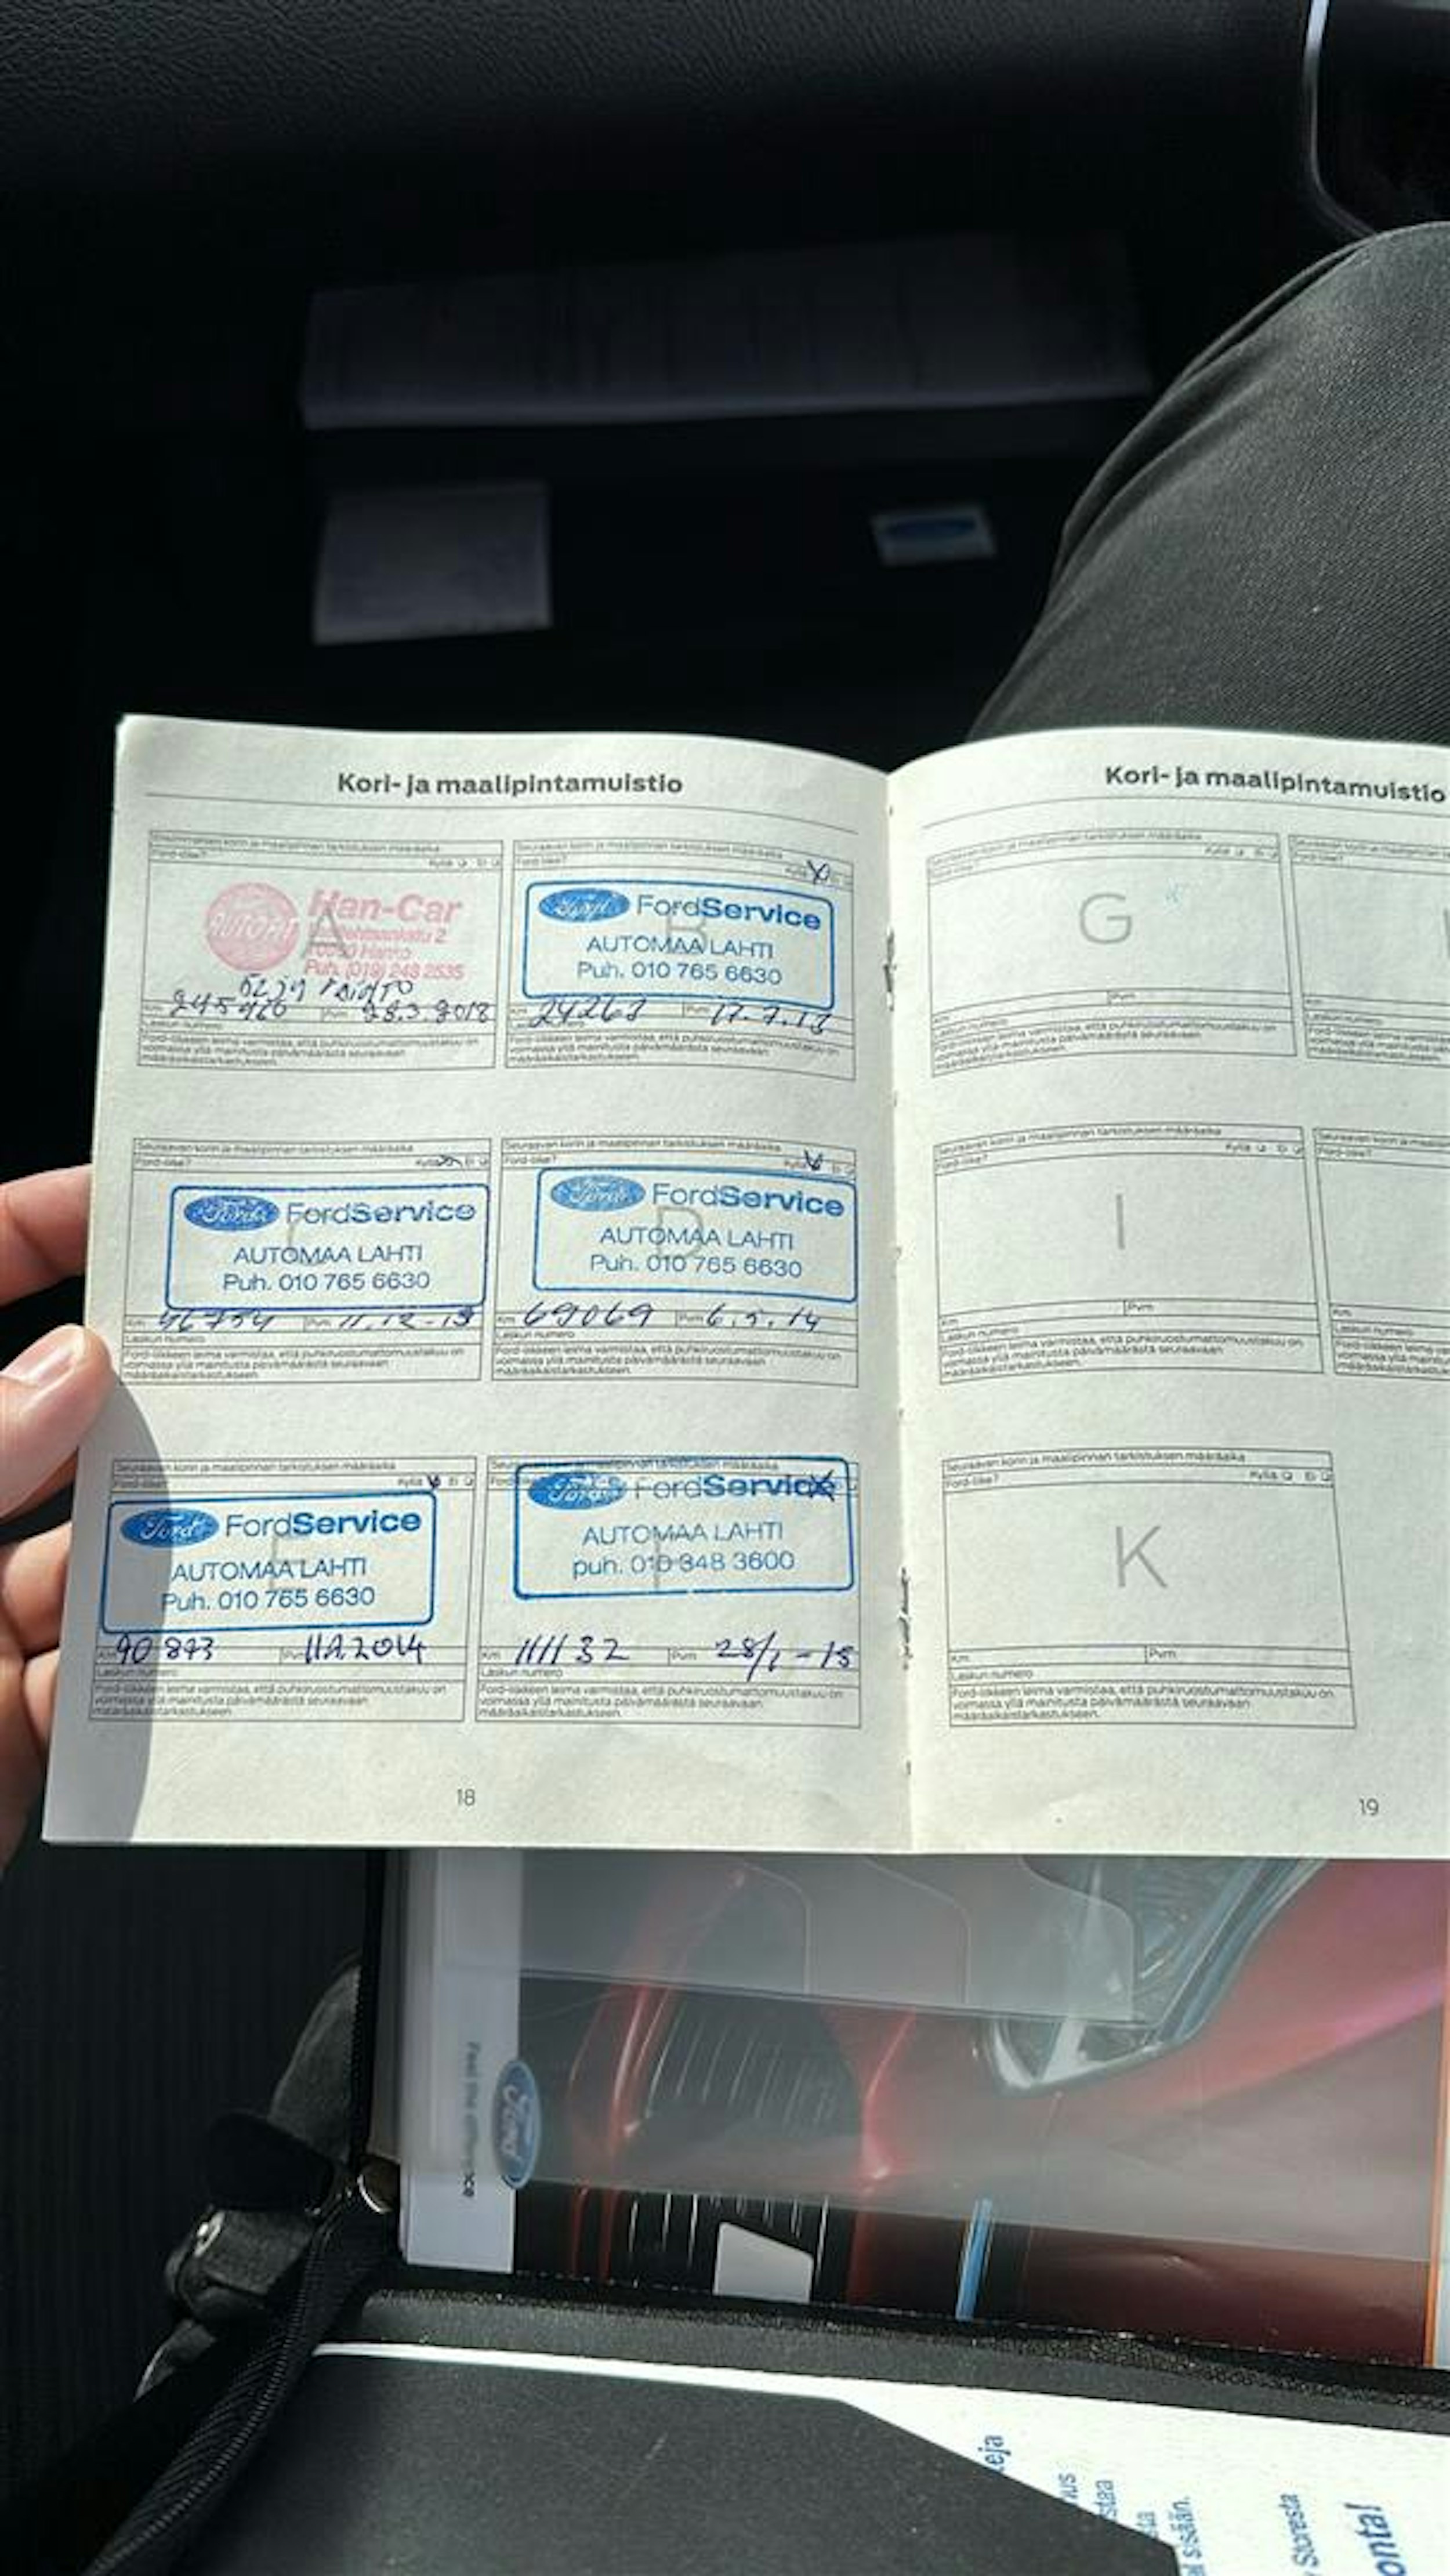 Kori- ja maalipintamuistio
Seuraavan korin ja maalipinnan tarkistuksen määräaika
Ford-liike? Kyllä Ei
A
AUTOFIT
Han-Car
Puh. (019) 248 2535
Km 245 Pvm 28.3.2018
Laskun numero
Ford-liikkeen leima varmistaa, että puhkiruostumattomuustakuu on
voimassa yllä mainitusta päivämäärästä seuraavaan
määräaikaistarkastukseen.
Seuraavan korin ja maalipinnan tarkistuksen määräaika
Ford-liike? Kyllä X Ei
B
Ford FordService
AUTOMAA LAHTI
Puh. 010 765 6630
Km 24263 Pvm 17.7.13
Laskun numero
Ford-liikkeen leima varmistaa, että puhkiruostumattomuustakuu on
voimassa yllä mainitusta päivämäärästä seuraavaan
määräaikaistarkastukseen.
Seuraavan korin ja maalipinnan tarkistuksen määräaika
Ford-liike? Kyllä Ei
Ford FordService
AUTOMAA LAHTI
Puh. 010 765 6630
Km 46754 Pvm 11.12-13
Laskun numero
Ford-liikkeen leima varmistaa, että puhkiruostumattomuustakuu on
voimassa yllä mainitusta päivämäärästä seuraavaan
määräaikaistarkastukseen.
Seuraavan korin ja maalipinnan tarkistuksen määräaika
Ford-liike? Kyllä Ei
D
Ford FordService
AUTOMAA LAHTI
Puh. 010 765 6630
Km 69069 Pvm 6.5.14
Laskun numero
Ford-liikkeen leima varmistaa, että puhkiruostumattomuustakuu on
voimassa yllä mainitusta päivämäärästä seuraavaan
määräaikaistarkastukseen.
Seuraavan korin ja maalipinnan tarkistuksen määräaika
Ford-liike? Kyllä Ei
E
Ford FordService
AUTOMAA LAHTI
Puh. 010 765 6630
Km 90 873 Pvm 11.9.2014
Laskun numero
Ford-liikkeen leima varmistaa, että puhkiruostumattomuustakuu on
voimassa yllä mainitusta päivämäärästä seuraavaan
määräaikaistarkastukseen.
Seuraavan korin ja maalipinnan tarkistuksen määräaika
Ford FordService
AUTOMAA LAHTI
puh. 010 348 3600
Km 111132 Pvm 28/1-15
Laskun numero
Ford-liikkeen leima varmistaa, että puhkiruostumattomuustakuu on
voimassa yllä mainitusta päivämäärästä seuraavaan
määräaikaistarkastukseen.
18
Kori- ja maalipintamuistio
Seuraavan korin ja maalipinnan tarkistuksen määräaika
Ford-liike? Kyllä Ei
G
Km Pvm
Laskun numero
Ford-liikkeen leima varmistaa, että puhkiruostumattomuustakuu on
voimassa yllä mainitusta päivämäärästä seuraavaan
määräaikaistarkastukseen.
Seuraavan korin ja maalipinnan tarkistuksen määräaika
Ford-liike? Kyllä Ei
I
Km Pvm
Laskun numero
Ford-liikkeen leima varmistaa, että puhkiruostumattomuustakuu on
voimassa yllä mainitusta päivämäärästä seuraavaan
määräaikaistarkastukseen.
Seuraavan korin ja maalipinnan tarkistuksen määräaika
Ford-liike? Kyllä Ei
K
Km Pvm
Laskun numero
Ford-liikkeen leima varmistaa, että puhkiruostumattomuustakuu on
voimassa yllä mainitusta päivämäärästä seuraavaan
määräaikaistarkastukseen.
19
Feel the difference
Ford
eja
nus
staa
sta
sisään.
Storesta
onta!